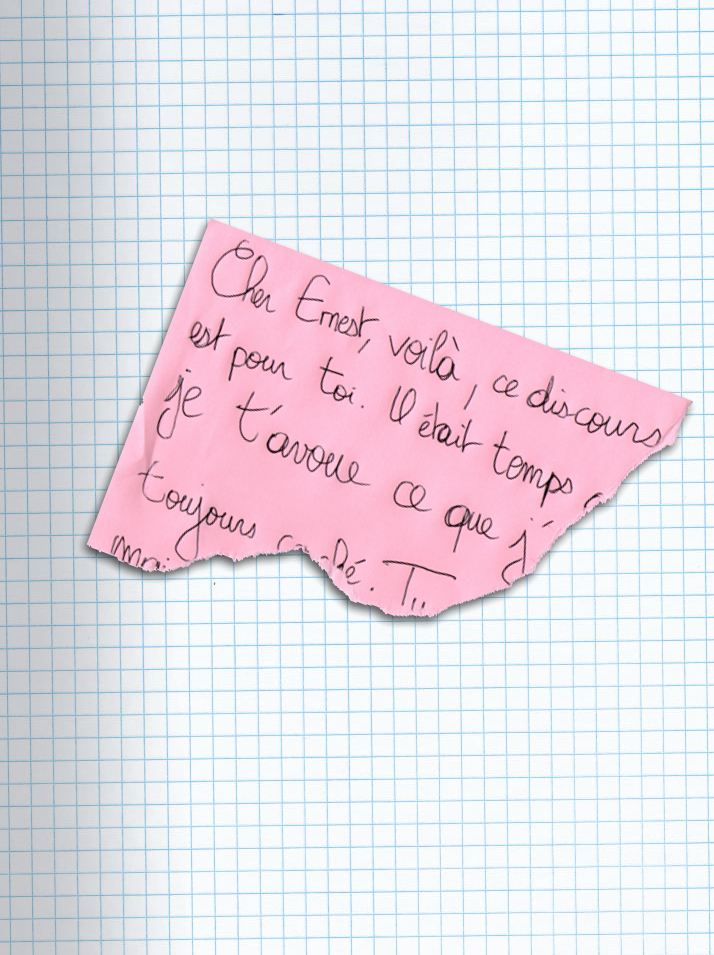 Cher Ernest, voilà, ce discours
est pour toi. Il était temps
je t'avoue ce que j'
toujours